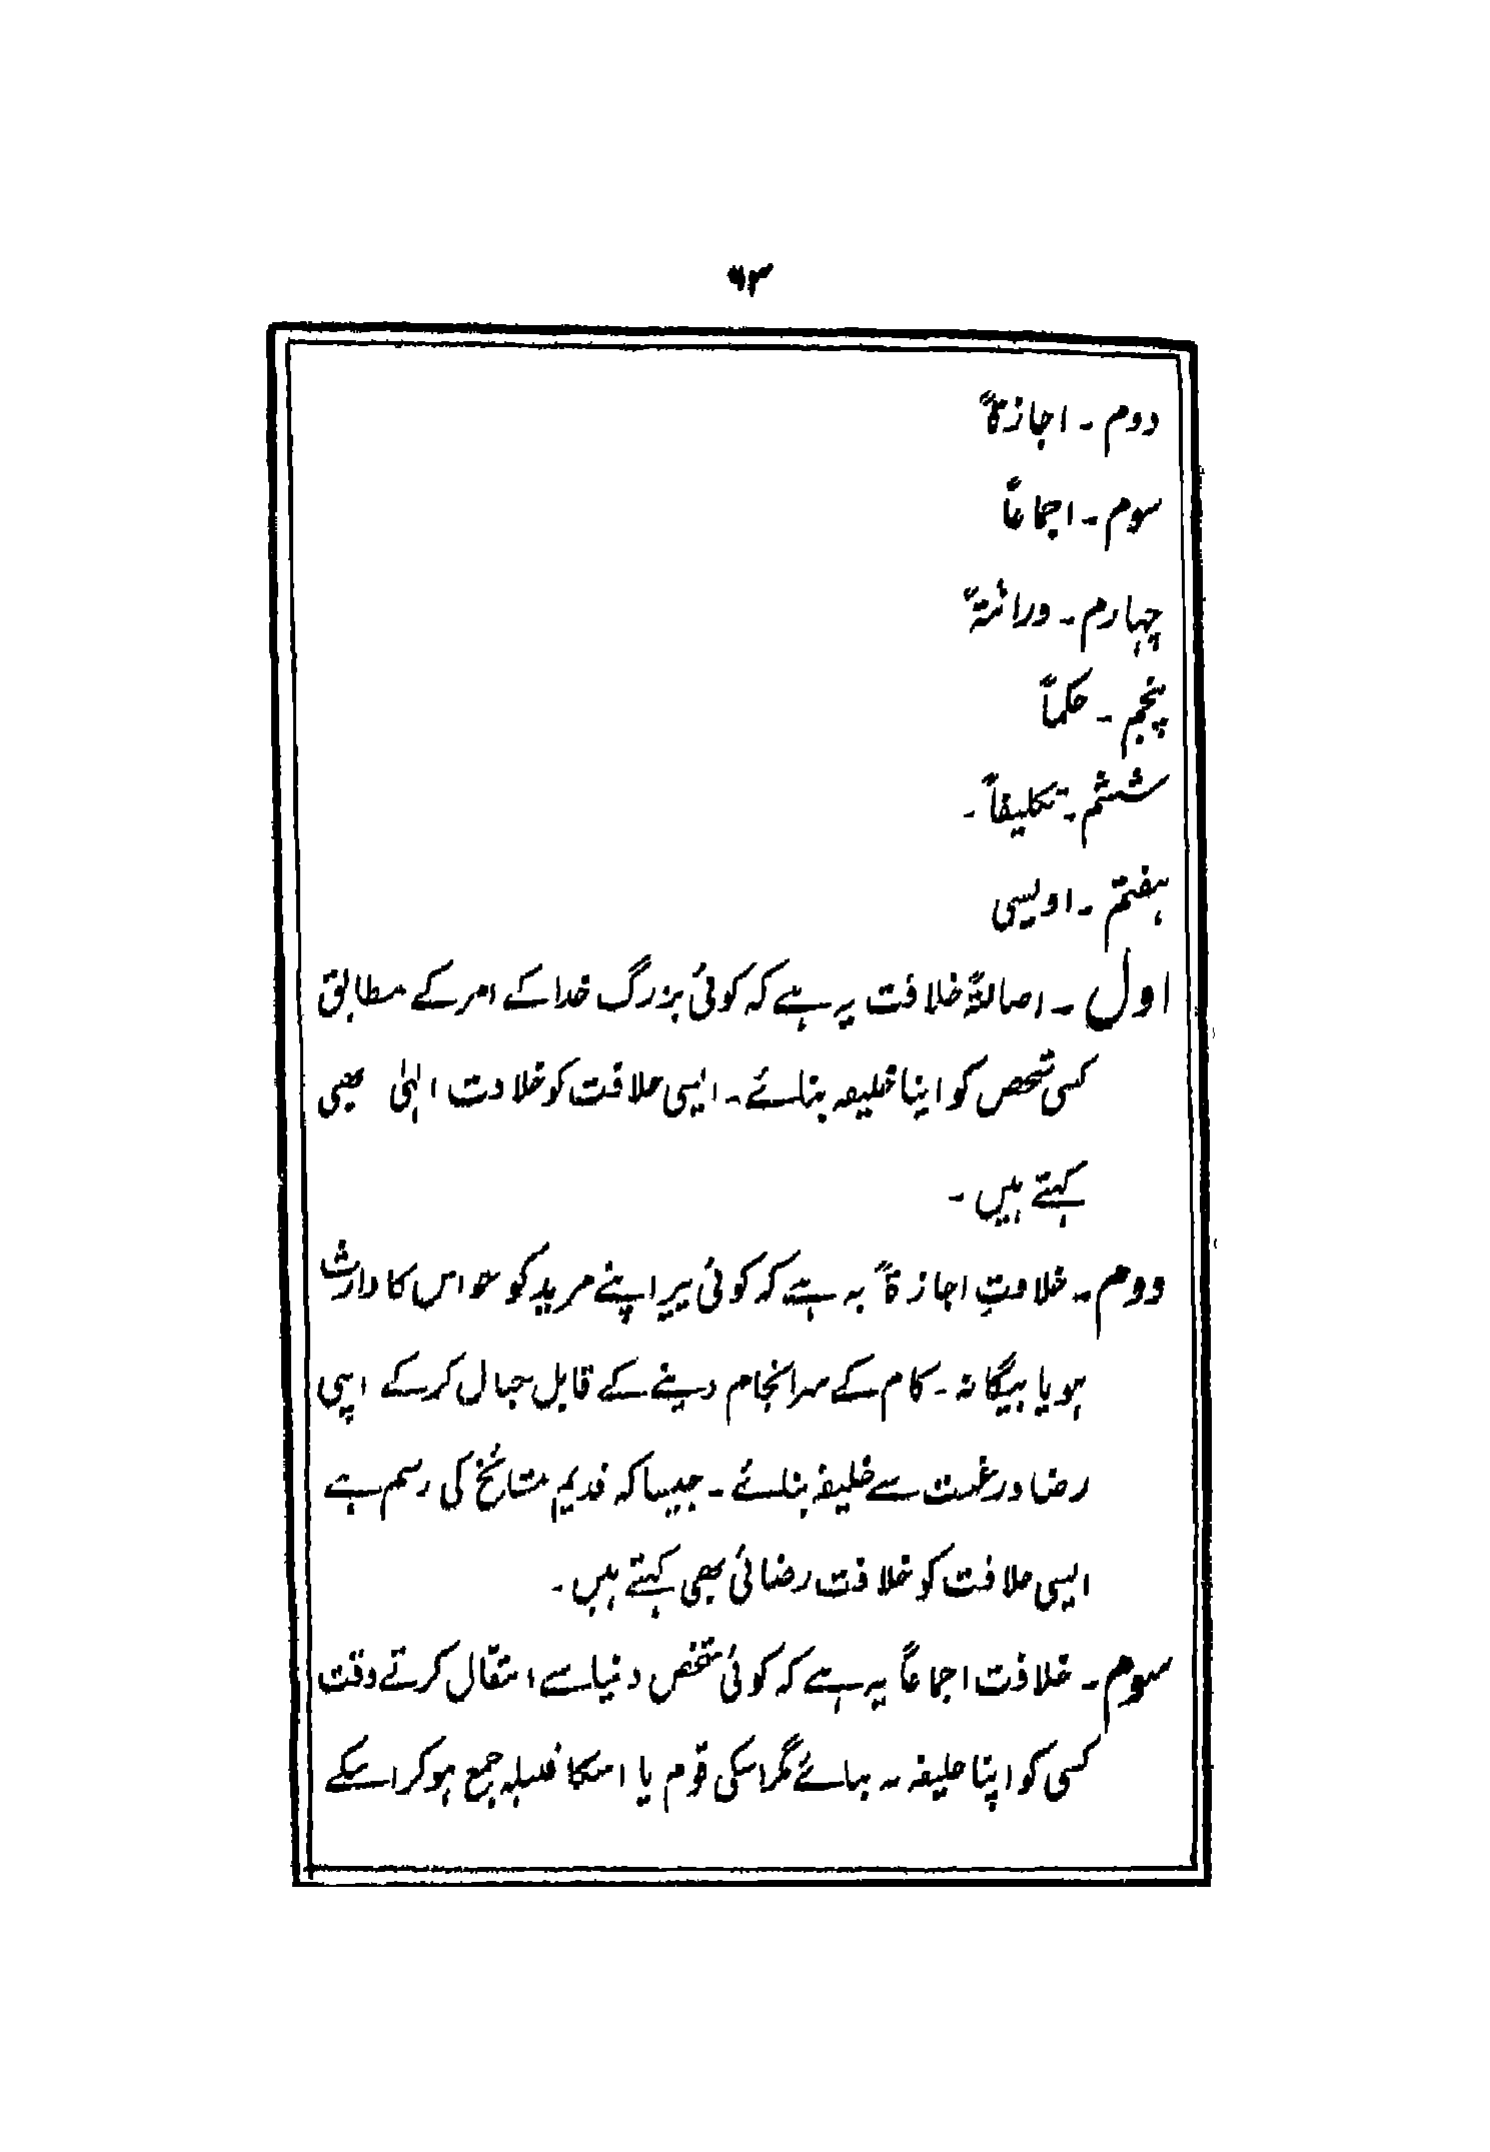 ۶۳
دوم - اجازۃً
سوم - اجماعاً
چہارم - وراثتہً
پنجم - حکماً
ششم - تکلیفاً -
ہفتم - اویسی
اول - اصالۃً خلافت یہ ہے کہ کوئی بزرگ خدا کے امر کے مطابق
کسی شخص کو اپنا خلیفہ بنائے - ایسی خلافت کو خلافت الٰہی بھی
کہتے ہیں -
دوم - خلافتِ اجازۃً یہ ہے کہ کوئی پیر اپنے مرید کو خواہ اس کا وارث
ہو یا بیگانہ - کام کے سرانجام دینے کے قابل خیال کرکے اپنی
رضا و رغبت سے خلیفہ بنائے - جیسا کہ قدیم مشائخ کی رسم ہے
ایسی خلافت کو خلافت رضائی بھی کہتے ہیں -
سوم - خلافت اجماعاً یہ ہے کہ کوئی شخص دنیا سے انتقال کرتے وقت
کسی کو اپنا خلیفہ نہ بنائے مگر اسکی قوم یا اسکا قبیلہ جمع ہوکر اسکے